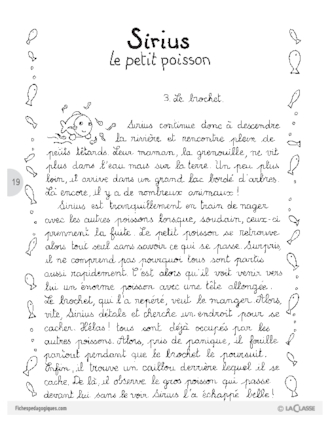 Sirius
le petit poisson
3. Le brochet
Sirius continue donc à descendre
la rivière et rencontre plein de
petits têtards. Leur maman, la grenouille, ne vit
plus dans l'eau mais sur la terre. Un peu plus
loin, il arrive dans un grand lac bordé d'arbres.
19
Là encore, il y a de nombreux animaux !
Sirius est tranquillement en train de nager
avec les autres poissons lorsque, soudain, ceux-ci
prennent la fuite. Le petit poisson se retrouve
alors tout seul sans savoir ce qui se passe. Surpris,
il ne comprend pas pourquoi tous sont partis
aussi rapidement. C'est alors qu'il voit venir vers
lui un énorme poisson avec une tête allongée.
Le brochet, qui l'a repéré, veut le manger. Alors,
vite, Sirius détale et cherche un endroit pour se
cacher. Hélas ! tous sont déjà occupés par les
autres poissons. Alors, pris de panique, il fouille
partout pendant que le brochet le poursuit.
Enfin, il trouve un caillou derrière lequel il se
cache. De là, il observe le gros poisson qui passe
devant lui sans le voir. Sirius l'a échappé belle !
Fichespedagogiques.com
© LACLASSE